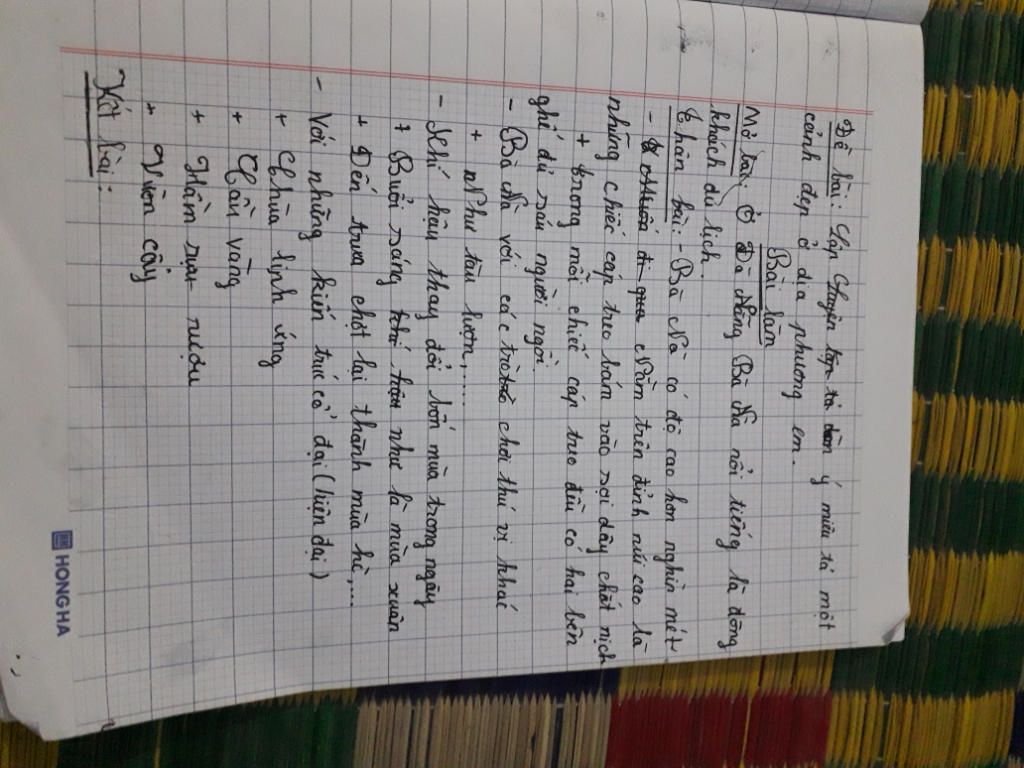 Đề bài: Lập dàn ý miêu tả một
cảnh đẹp ở địa phương em.
Bài làm
Mở bài: Ở Đà Nẵng Bà Nà nổi tiếng là đông
khách du lịch.
Thân bài: - Bà Nà có độ cao hơn nghìn mét
- Nằm trên đỉnh núi cao là
những chiếc cáp treo bám vào sợi dây chắc nịch
+ trong mỗi chiếc cáp treo đều có hai bên
ghế đủ sáu người ngồi.
- Bà Nà với các trò chơi thú vị khác
+ Như tàu lượn,.....
- Khí hậu thay đổi bốn mùa trong ngày
+ Buổi sáng như là mùa xuân
+ Đến trưa chợt lại thành mùa hè,...
- Với những kiến trúc cổ đại (hiện đại)
+ Chùa linh ứng
+ Cầu vàng
+ Hầm rượu
+ Vườn cây
Kết bài:
HONG HA